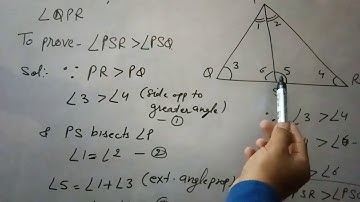 ∠QPR
To prove - ∠PSR > ∠PSQ
Sol: ∵ PR > PQ
∠3 > ∠4 (side opp to
greater angle)
— ①
& PS bisects ∠P
∠1 = ∠2 — ②
∠5 = ∠1 + ∠3 (ext. angle prop)
1 2
Q 3 6 5 4 R
∠3 > ∠4
∠6